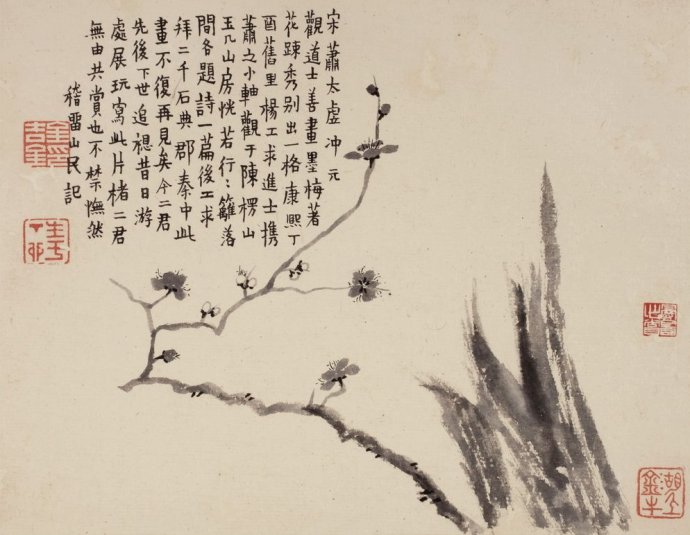 宋蕭太虛冲元
觀道士善畫墨梅著
花踈秀别出一格康熙丁
酉舊里楊工求進士携
蕭之小軸觀于陳楞山
玉几山房恍若行〻籬落
間各題詩一篇後工求
拜二千石典郡秦中此
畫不復再見矣今二君
先後下世追想昔日游
處展玩寫此片楮二君
無由共賞也不禁憮然
稽畱山民記